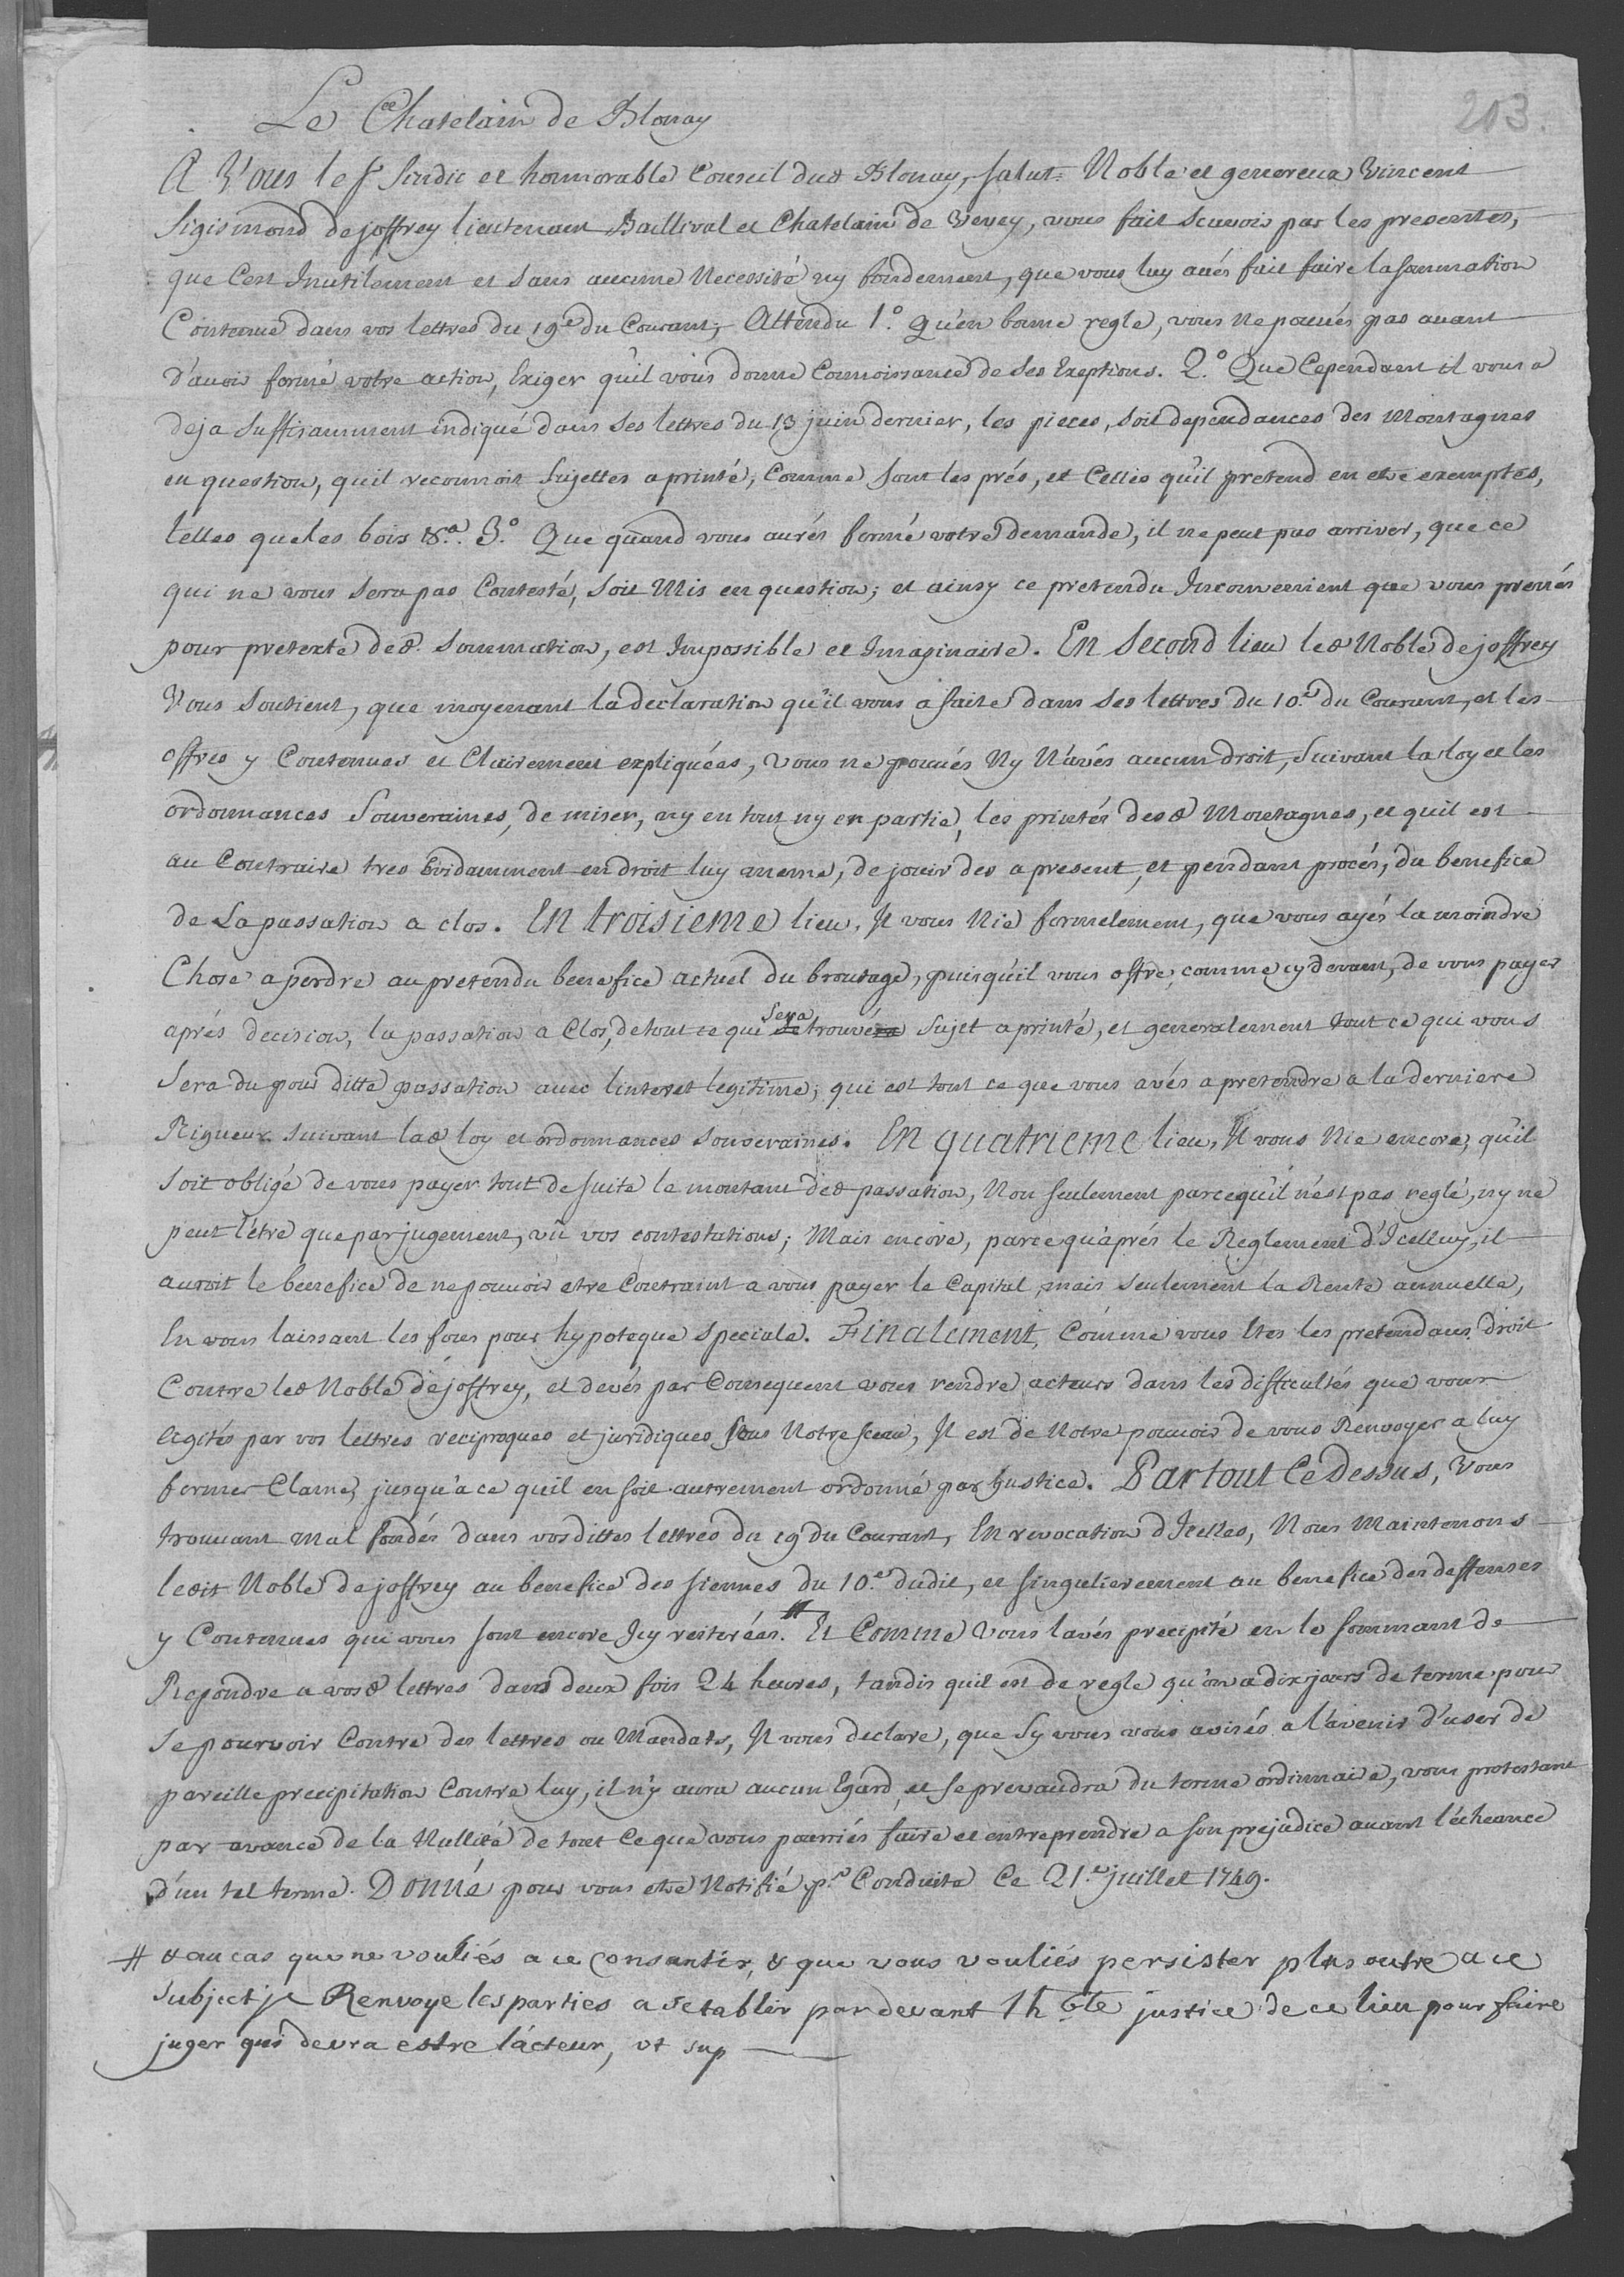 203.
Le Chatelain de Blonay
A Vous le Sr Sindic et honnorable Conseil dud Blonay, salut. Noble et genereux Vincent
Sigismond de joffrey lieutenant Baillival et Chatelain de Vevey, vous fait scavoir par les presentes,
que C'est Inutilement et sans aucune Necessité ny fondement, que vous luy avés fait faire la sommation
Contenue dans vos lettres du 19e du Courant; Attendu 1.o Qu'en bonne regle, vous ne pouvés pas avant
d'avoir formé votre action, Exiger qu'il vous donne Connoissance de ses Exeptions. 2.o Que Cependant il vous a
deja suffisamment indiqué dans ses lettres du 13 juin dernier, les pieces, soit dependances des Montagnes
en question, qu'il reconnoit sujettes a printé, Comme sont les prés, et Celles qu'il pretend en etre exemptes,
telles que les bois &a. 3.o Que quand vous aurés formé votre demande, il ne peut pas arriver, que ce
qui ne vous sera pas Contesté, soit Mis en question; et ainsy ce pretendu Inconvenient que vous prenés
pour pretexte ded. sommation, est Impossible et Imaginaire. En second lieu led Noble de joffrey
Vous soutient, que moyenant la declaration qu'il vous a faite dans ses lettres du 10.e du Courant, et les
offres y Contenues et Clairement expliquées, vous ne pouvés Ny N'avés aucun droit, suivant la loy et les
ordonnances Souveraines, de miser, ny en tout ny en partie, les printés desd Montagnes, et quil est
au Contraire tres Evidamment en droit luy meme, de jouir des a present, et pendant procés, du benefice
de La passation a clos. En troisieme lieu, Il vous Nie formelement, que vous ayés la moindre
Chose a perdre au pretendu benefice actuel du broutage, puisqu'il vous offre, comme cy devant, de vous payer
aprés decision, la passation a Clos, de tout ce qui sera trouvé sujet a printé, et generalement tout ce qui vous
sera du pour ditte passation avec l'interet legitime; qui est tout ce que vous avés a pretendre a la derniere
Rigueur suivant lad loy et ordonnances souveraines. En quatrieme lieu, Il vous Nie encore, qu'il
soit obligé de vous payer tout de suite le montant ded passation, Non seulement parcequ'il n'est pas reglé, ny ne
peut l'être que par jugement, vû vos contestations; Mais encore, parce qu'aprés le Reglement d'Icelluy, il
auroit le benefice de ne pouvoir etre Contraint a vous payer le Capital, mais seulement la Rente annuelle,
En vous laissant les fons pour hypoteque speciale. Finalement, Comme vous Etes les pretendans droit
Contre led Noble de joffrey, et devés par Consequent vous rendre acteurs dans les difficultés que vous
Agités par vos lettres reciproques et juridiques sous Notre sceau, Il est de Notre pouvoir de vous Renvoyer a luy
former Clame, jusqu'a ce quil en soit autrement ordonné par justice. Par tout Ce Dessus, Vous
trouvant mal fondés dans vosdittes lettres du 19 du Courant, En revocation d'Icelles, Nous Maintenons
ledit Noble de joffrey au benefice des siennes du 10.e dudit, et singulierement au benefice des deffenses
y Contenues qui vous sont encore Icy reiterées. # Et Comme Vous l'avés precipité en le sommant de
Repondre a vosd lettres dans deux fois 24 heures, tandis quil est de regle qu'on a dix jours de terme pour
se pourvoir Contre des lettres ou Mandats, Il vous declare, que sy vous vous avisés a l'avenir d'user de
pareille precipitation Contre luy, il n'y aura aucun Egard, et se prevaudra du terme ordinnaire, vous protestant
par avance de la Nullité de tout Ce que vous pourriés faire et entreprendre a son prejudice avant l'écheance
d'un tel terme. Donné pour vous etre Notifié pr Conduite Ce 21.e juillet 1749.
# & au cas que ne vouliés a ce consantir, & que vous vouliés persister plus outre a ce
subject je Renvoye les parties a s'etablir par devant l'hble justice de ce lieu pour faire
juger qui devra estre l'acteur, ut sup